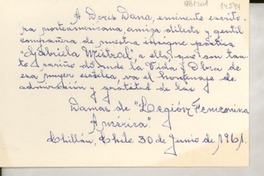 A Doris Dana, eminente escrito-
ra norteamericana, amiga dilecta y gentil
compañera de nuestra insigne poetisa
"Gabriela Mistral", a ella, que con tan-
to cariño difunde la Vida y Obra de
esa mujer excelsa, va el homenaje de
admiración y gratitud de las
Damas de "Legión Femenina
América"
Chillán, Chile 30 de Junio de 1961.